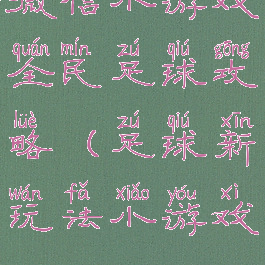 戏
quán mín zú qiú gōng
全民足球攻
lüè zú qiú xīn
略（足球新
wán fǎ xiǎo yóu xì
玩法小游戏